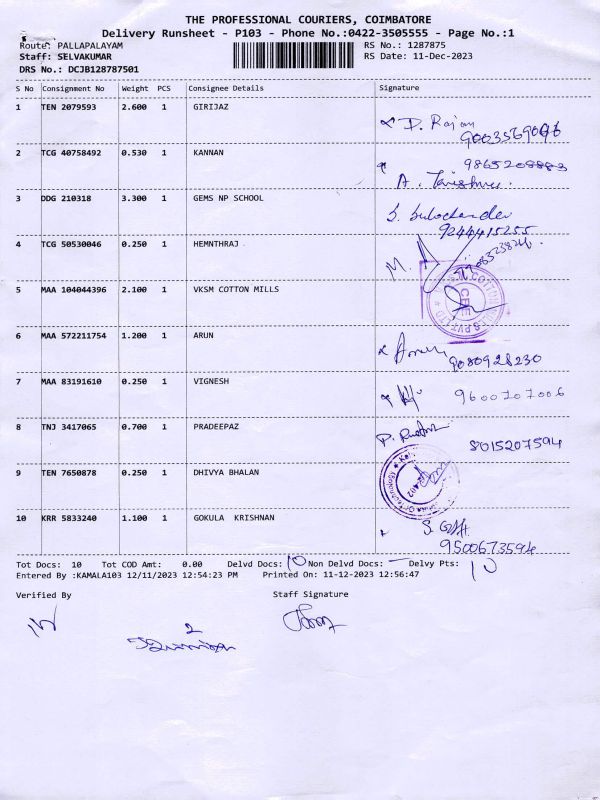 THE PROFESSIONAL COURIERS, COIMBATORE
Delivery Runsheet - P103 - Phone No.:0422-3505555 - Page No.:1
Route: PALLAPALAYAM RS No.: 1287875
Staff: SELVAKUMAR RS Date: 11-Dec-2023
DRS No.: DCJB128787501
S No Consignment No Weight PCS Consignee Details Signature
1 TEN 2079593 2.600 1 GIRIJAZ
D. Rajan
2 TCG 40758492 0.530 1 KANNAN
3 DDG 210318 3.300 1 GEMS NP SCHOOL
9244415255
4 TCG 50530046 0.250 1 HEMNTHRAJ
M.
5 MAA 104044396 2.100 1 VKSM COTTON MILLS
COTTON
CBE
6 MAA 572211754 1.200 1 ARUN
9080928230
7 MAA 83191610 0.250 1 VIGNESH
9600707006
8 TNJ 3417065 0.700 1 PRADEEPAZ
8015207594
9 TEN 7650878 0.250 1 DHIVYA BHALAN
10 KRR 5833240 1.100 1 GOKULA KRISHNAN
9500673594
Tot Docs: 10 Tot COD Amt: 0.00 Delvd Docs: 10 Non Delvd Docs: — Delvy Pts: 10
Entered By :KAMALA103 12/11/2023 12:54:23 PM Printed On: 11-12-2023 12:56:47
Verified By Staff Signature